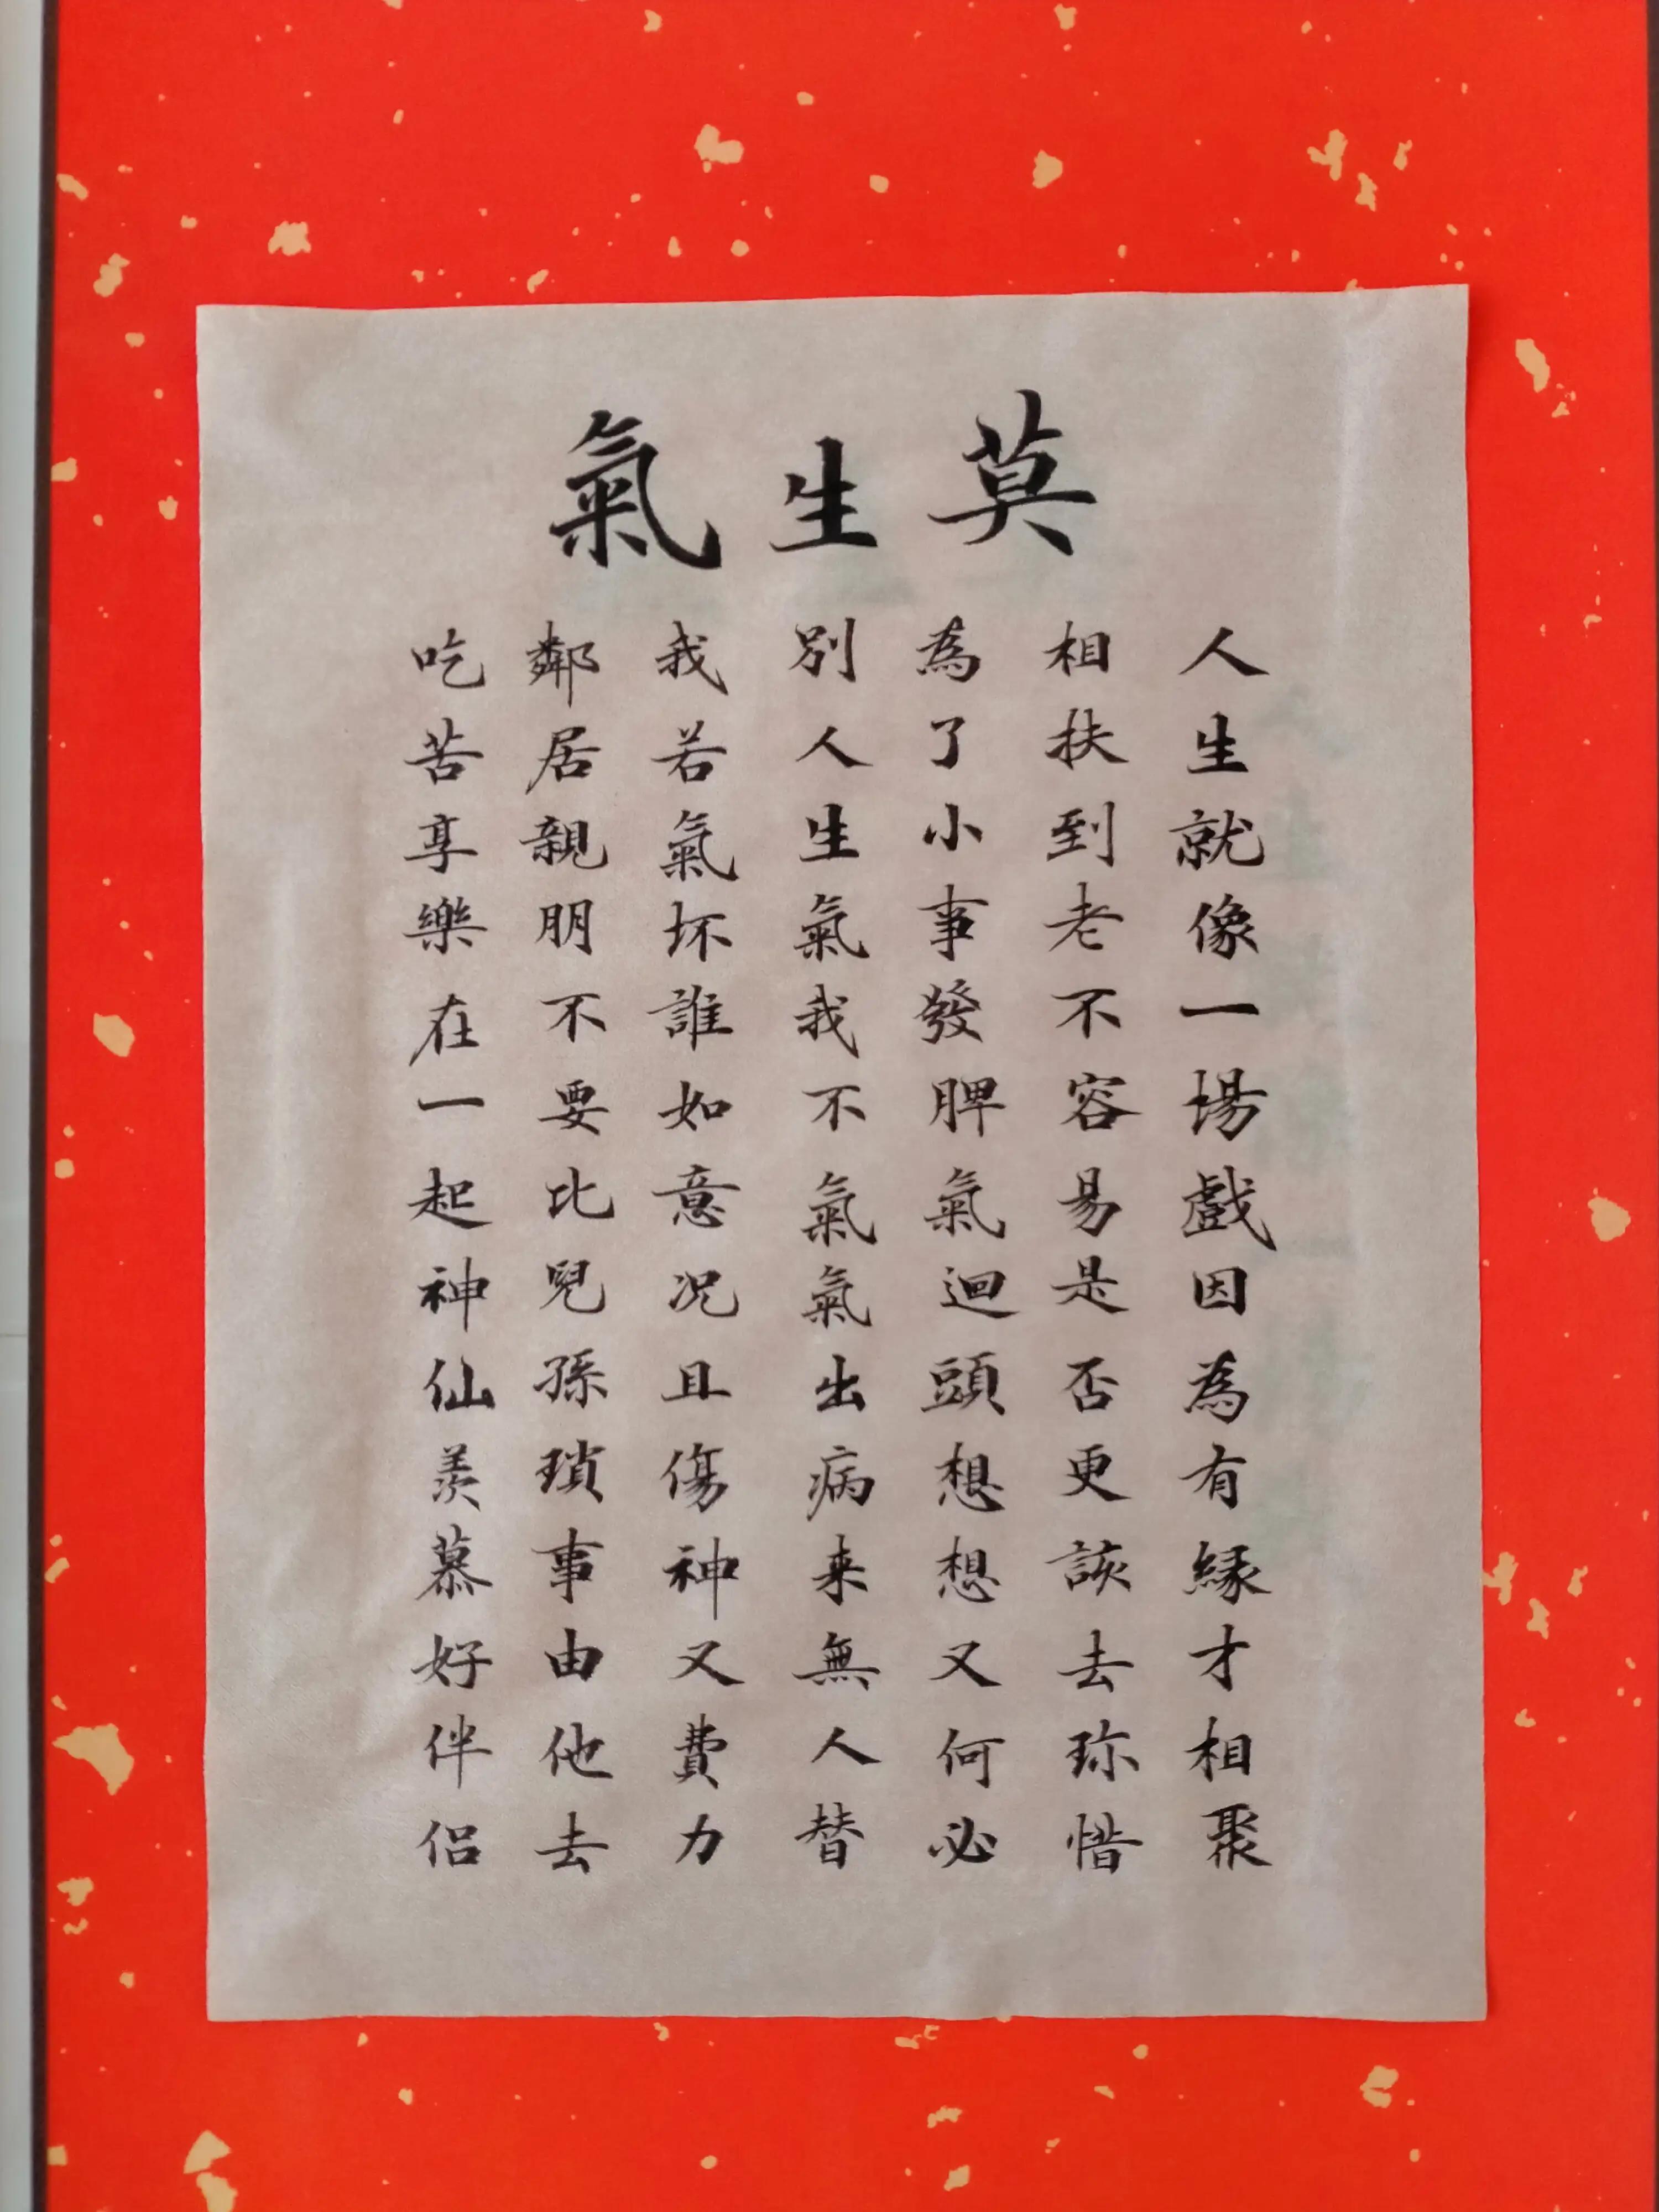 莫生氣
人生就像一場戲因為有緣才相聚
相扶到老不容易是否更該去珎惜
為了小事發脾氣迴頭想想又何必
別人生氣我不氣氣出病来無人替
我若氣坏誰如意况且傷神又費力
鄰居親朋不要比兒孫瑣事由他去
吃苦享樂在一起神仙羨慕好伴侣